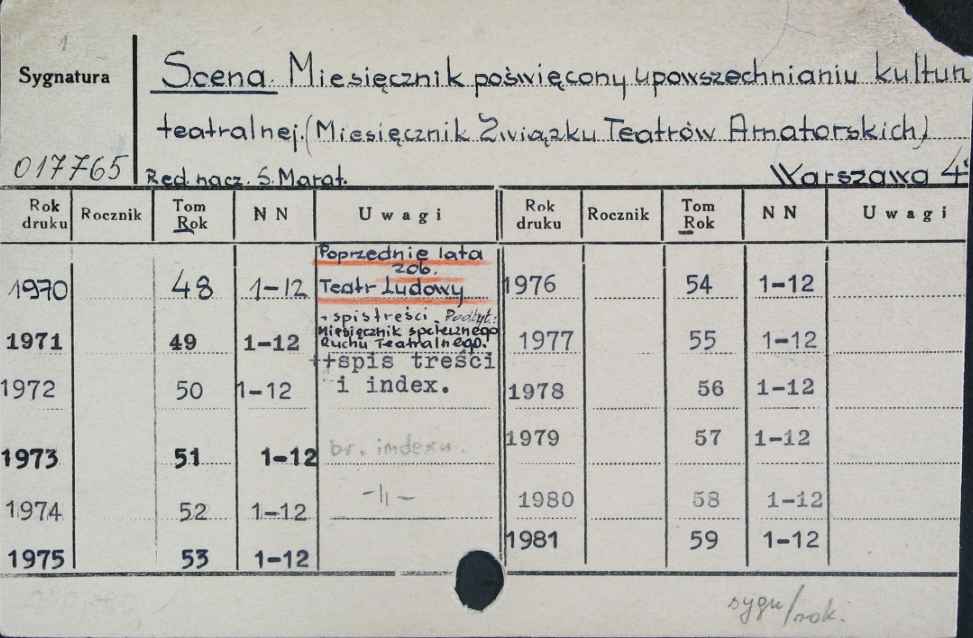 1
Sygnatura
Scena. Miesięcznik poświęcony upowszechnianiu kultur
teatralnej. (Miesięcznik Związku Teatrów Amatorskich)
017765 Red. nacz. S. Marat. Warszawa 4°
Rok druku Rocznik Tom Rok N N Uwagi Rok druku Rocznik Tom Rok N N Uwagi
Poprzednie lata
zob.
1970 48 1-12 Teatr Ludowy 1976 54 1-12
+ spis treści. Podtyt:
Miesięcznik społecznego
1971 49 1-12 Ruchu Teatralnego. 1977 55 1-12
++spis treści
1972 50 1-12 i index. 1978 56 1-12
1973 51 1-12 br. indexu. 1979 57 1-12
1974 52 1-12 -||- 1980 58 1-12
1975 53 1-12 1981 59 1-12
sygn/rok.